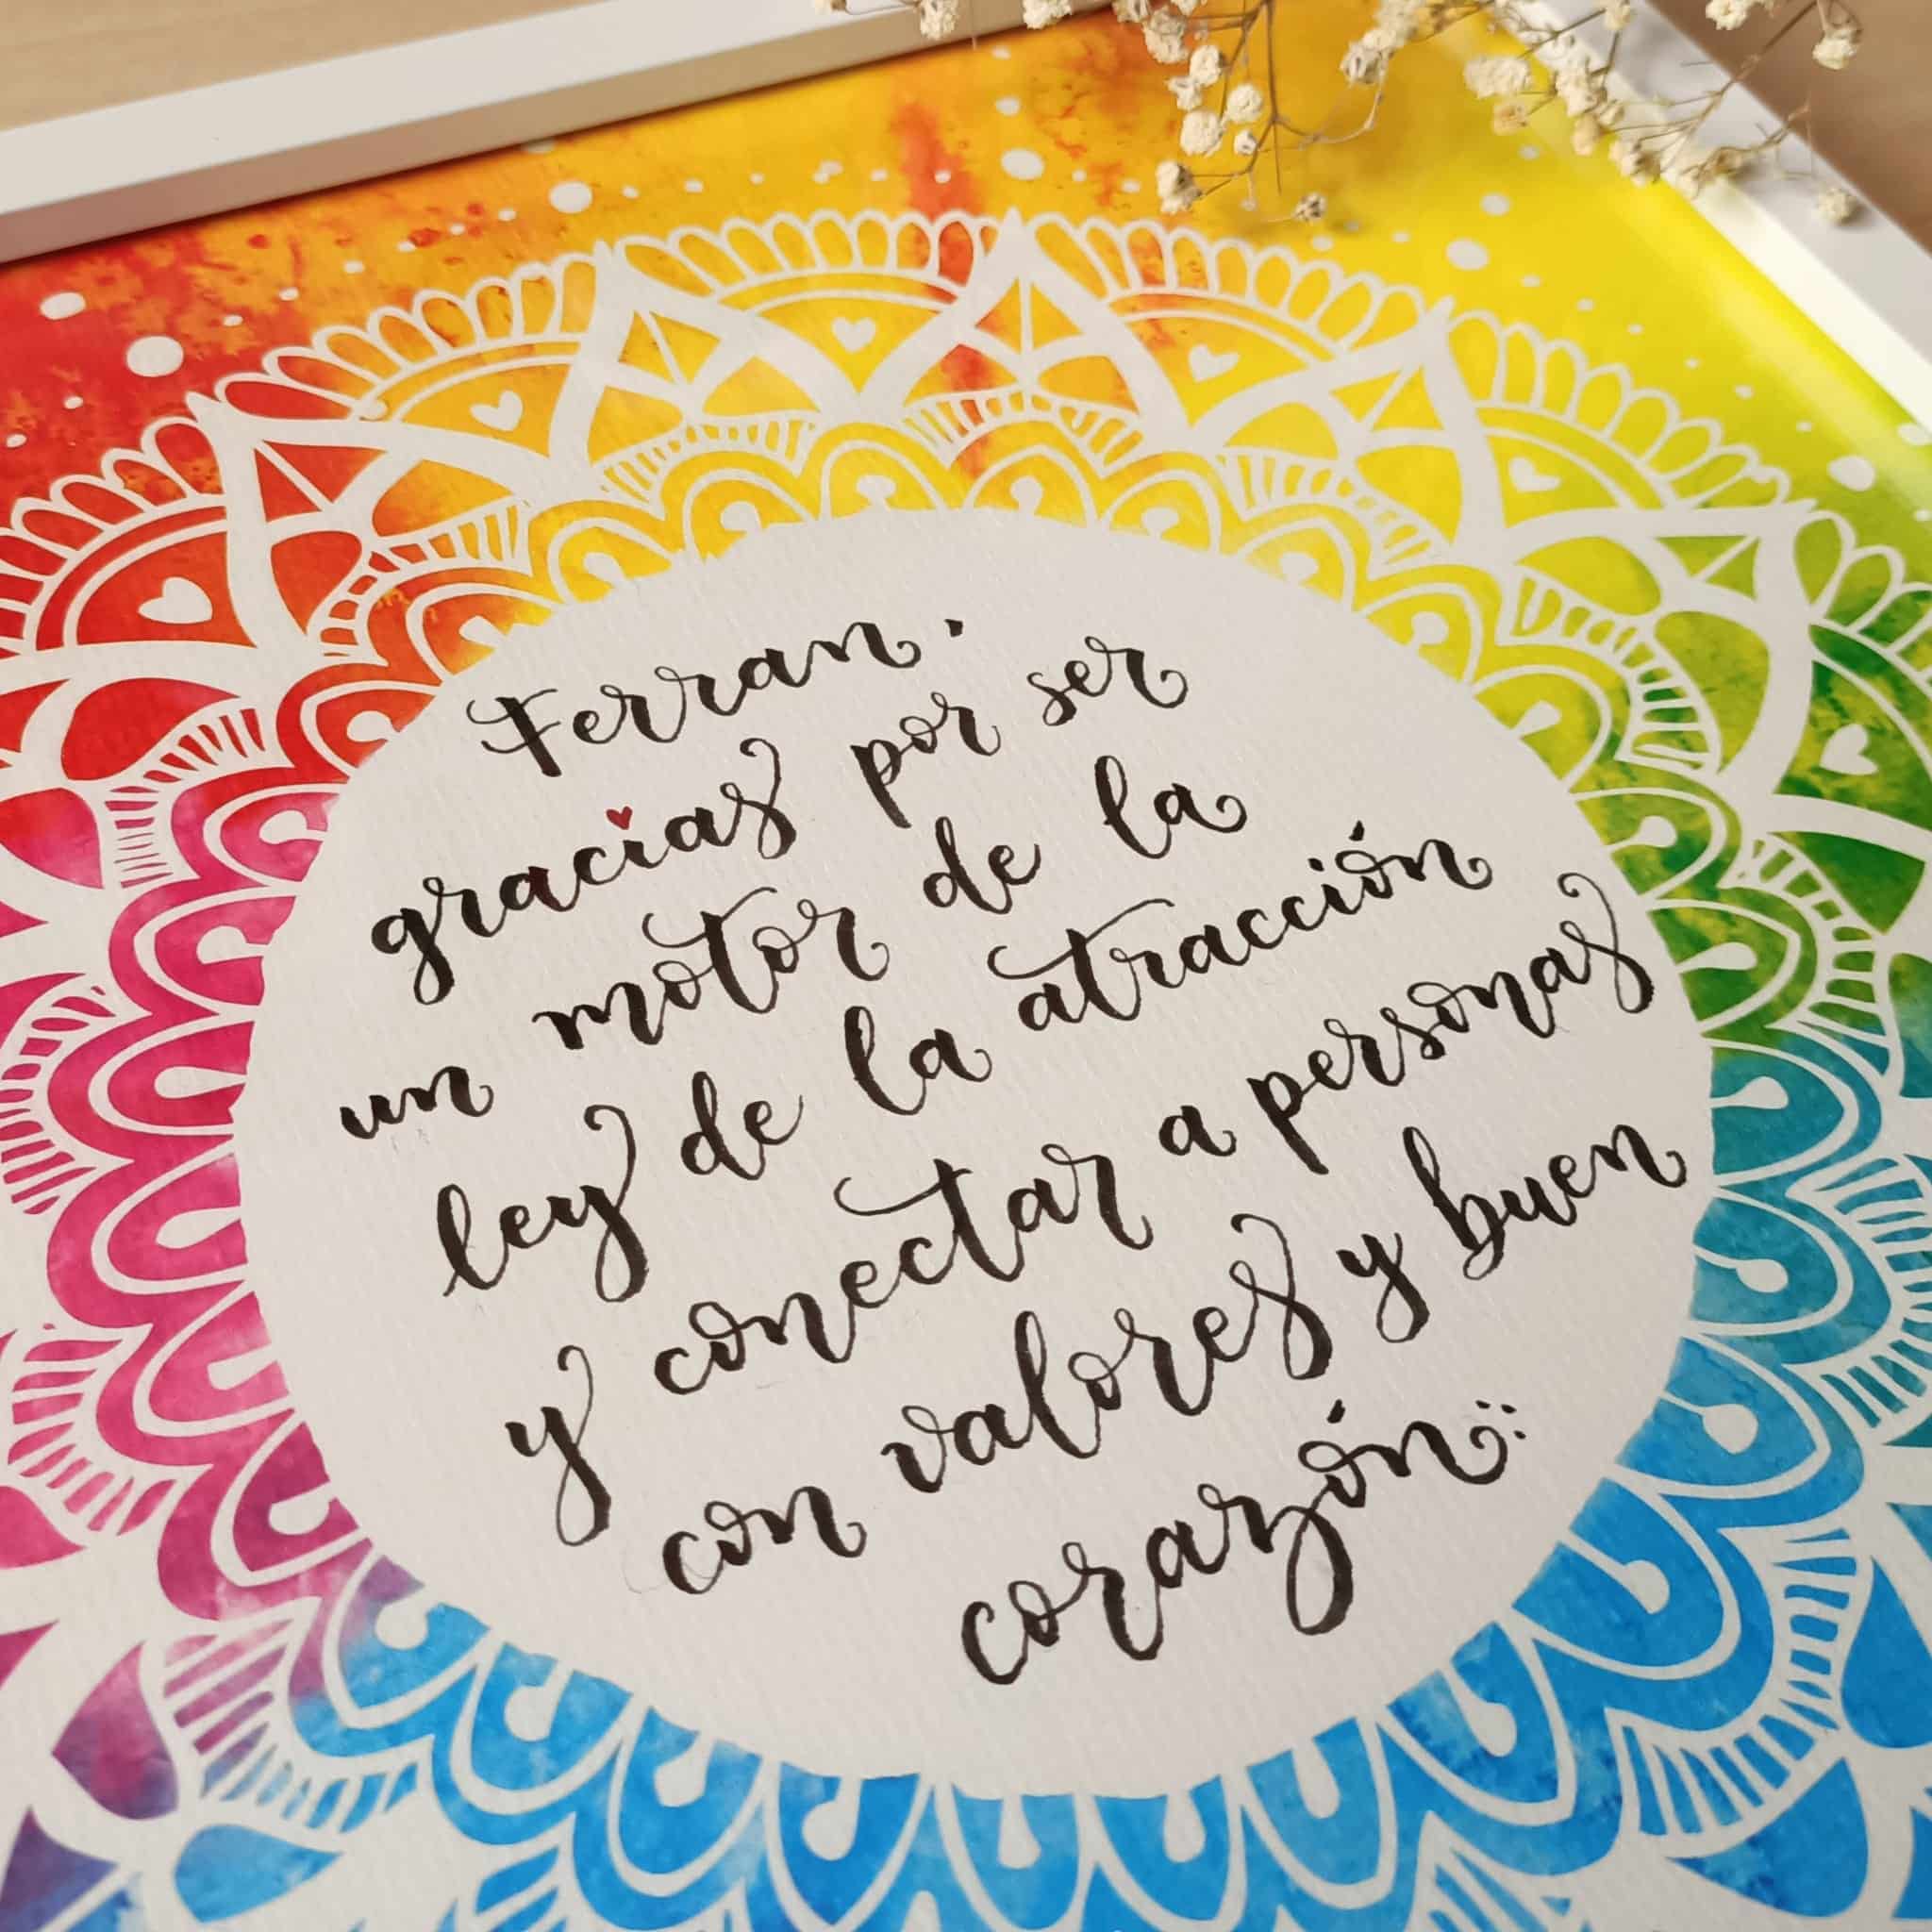 Ferran.
gracias por ser
un motor de la
ley de la atracción
y conectar a personas
con valores y buen
corazón